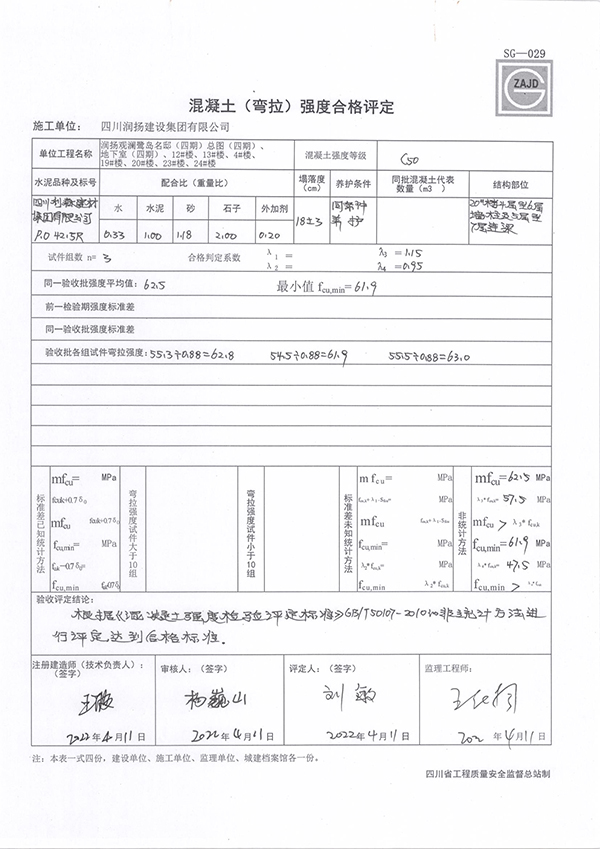 SG—029
ZAJD
混凝土（弯拉）强度合格评定
施工单位： 四川润扬建设集团有限公司
单位工程名称
润扬观澜鹭岛名邸（四期）总图（四期）、
地下室（四期）、12#楼、13#楼、4#楼、
19#楼、20#楼、23#楼、24#楼
混凝土强度等级 C50
水泥品种及标号 配合比（重量比） 塌落度（cm） 养护条件 同批混凝土代表数量（m3 ） 结构部位
P.O 42.5R
水 水泥 砂 石子 外加剂
0.33 1.00 1.18 2.00 0.20
18±3
同条件养护
试件组数 n= 3 合格判定系数 λ1 = λ3 = 1.15
λ2 = λ4 = 0.95
同一验收批强度平均值: 62.5 最小值 fcu,min= 61.9
前一检验期强度标准差
同一验收批强度标准差
验收批各组试件弯拉强度: 55.3÷0.88=62.8 54.5÷0.88=61.9 55.5÷0.88=63.0
标准差已知统计方法
mfcu= MPa
fcuk+0.7δ0
mfcu fcuk+0.7δ0
fcu,min= MPa
fcu,min
弯拉强度试件大于10组
弯拉强度试件小于10组
标准差未知统计方法
mfcu= MPa
MPa
mfcu
fcu,min= MPa
MPa
fcu,min
非统计方法
mfcu= 62.5 MPa
57.5 MPa
mfcu >
fcu,min= 61.9 MPa
47.5 MPa
fcu,min >
验收评定结论:
根据《混凝土强度检验评定标准》GB/T50107-2010的非统计方法进
行评定达到合格标准.
注册建造师（技术负责人）:
（签字）
审核人: （签字）
评定人: （签字）
监理工程师:
杨巍山
刘敏
2022年4月11日 2022年4月11日 2022年4月11日 202 年4月11日
注: 本表一式四份, 建设单位、施工单位、监理单位、城建档案馆各一份。
四川省工程质量安全监督总站制